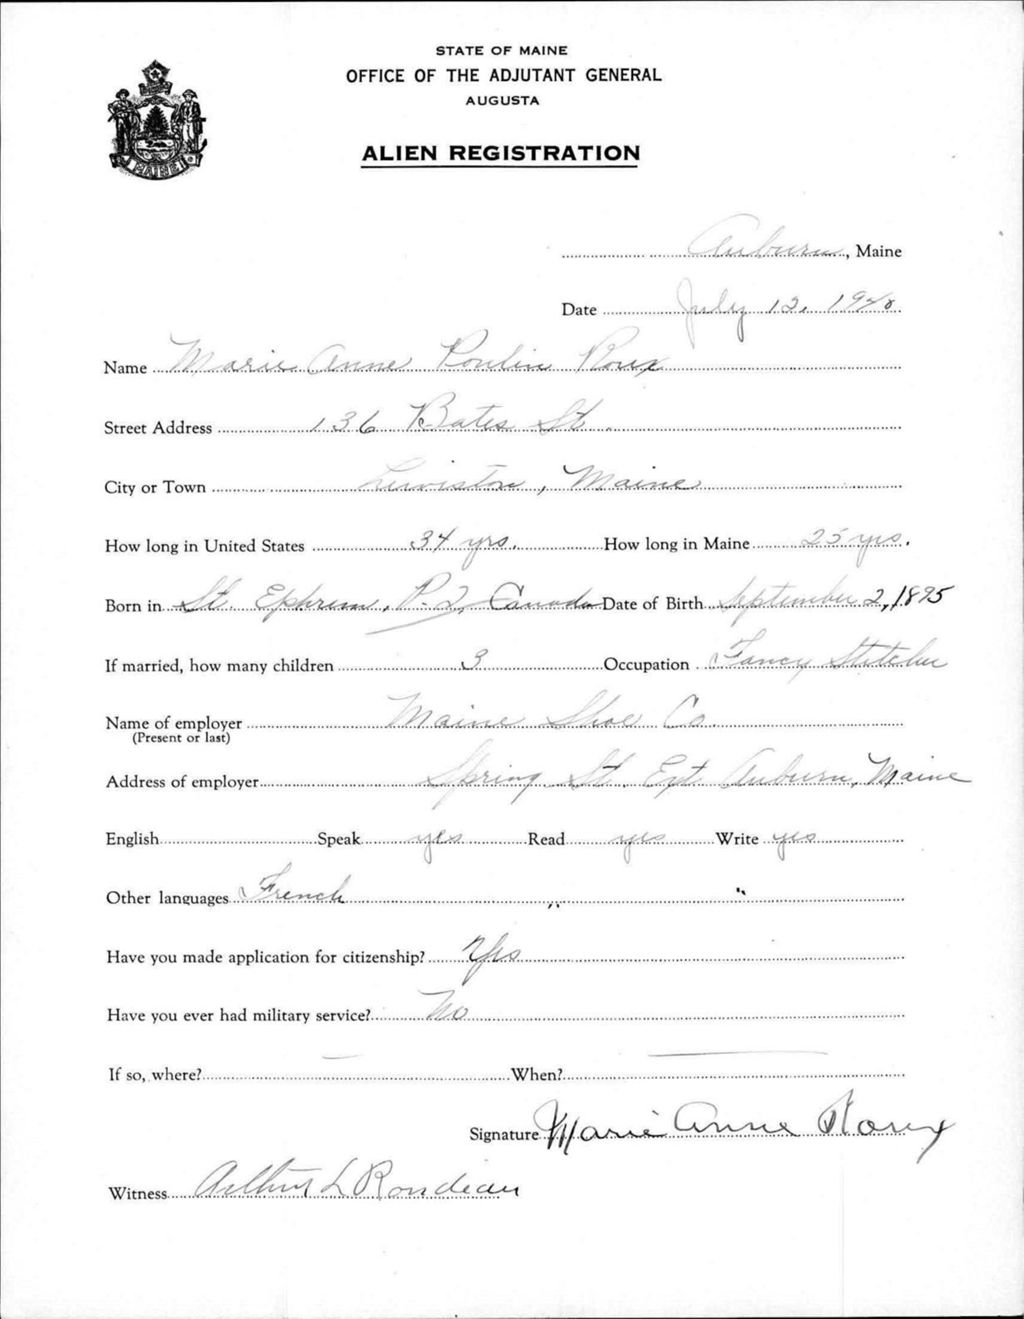 STATE OF MAINE
OFFICE OF THE ADJUTANT GENERAL
AUGUSTA
ALIEN REGISTRATION
MAINE
Auburn, Maine
Date July 12, 1940
Name Marie Anne Poulin Roux
Street Address 136 Bates St.
City or Town Lewiston, Maine
How long in United States 34 yrs. How long in Maine 25 yrs.
Born in St. Ephrem, P.Q. Canada Date of Birth September 2, 1895
If married, how many children 3 Occupation Fancy Stitcher
Name of employer Maine Shoe Co.
(Present or last)
Address of employer Spring St. Ext. Auburn, Maine
English Speak yes Read yes Write yes
Other languages French " "
Have you made application for citizenship? Yes
Have you ever had military service? No
If so, where? — When? —
Signature Marie Anne Roux
Witness Arthur L Rondeau